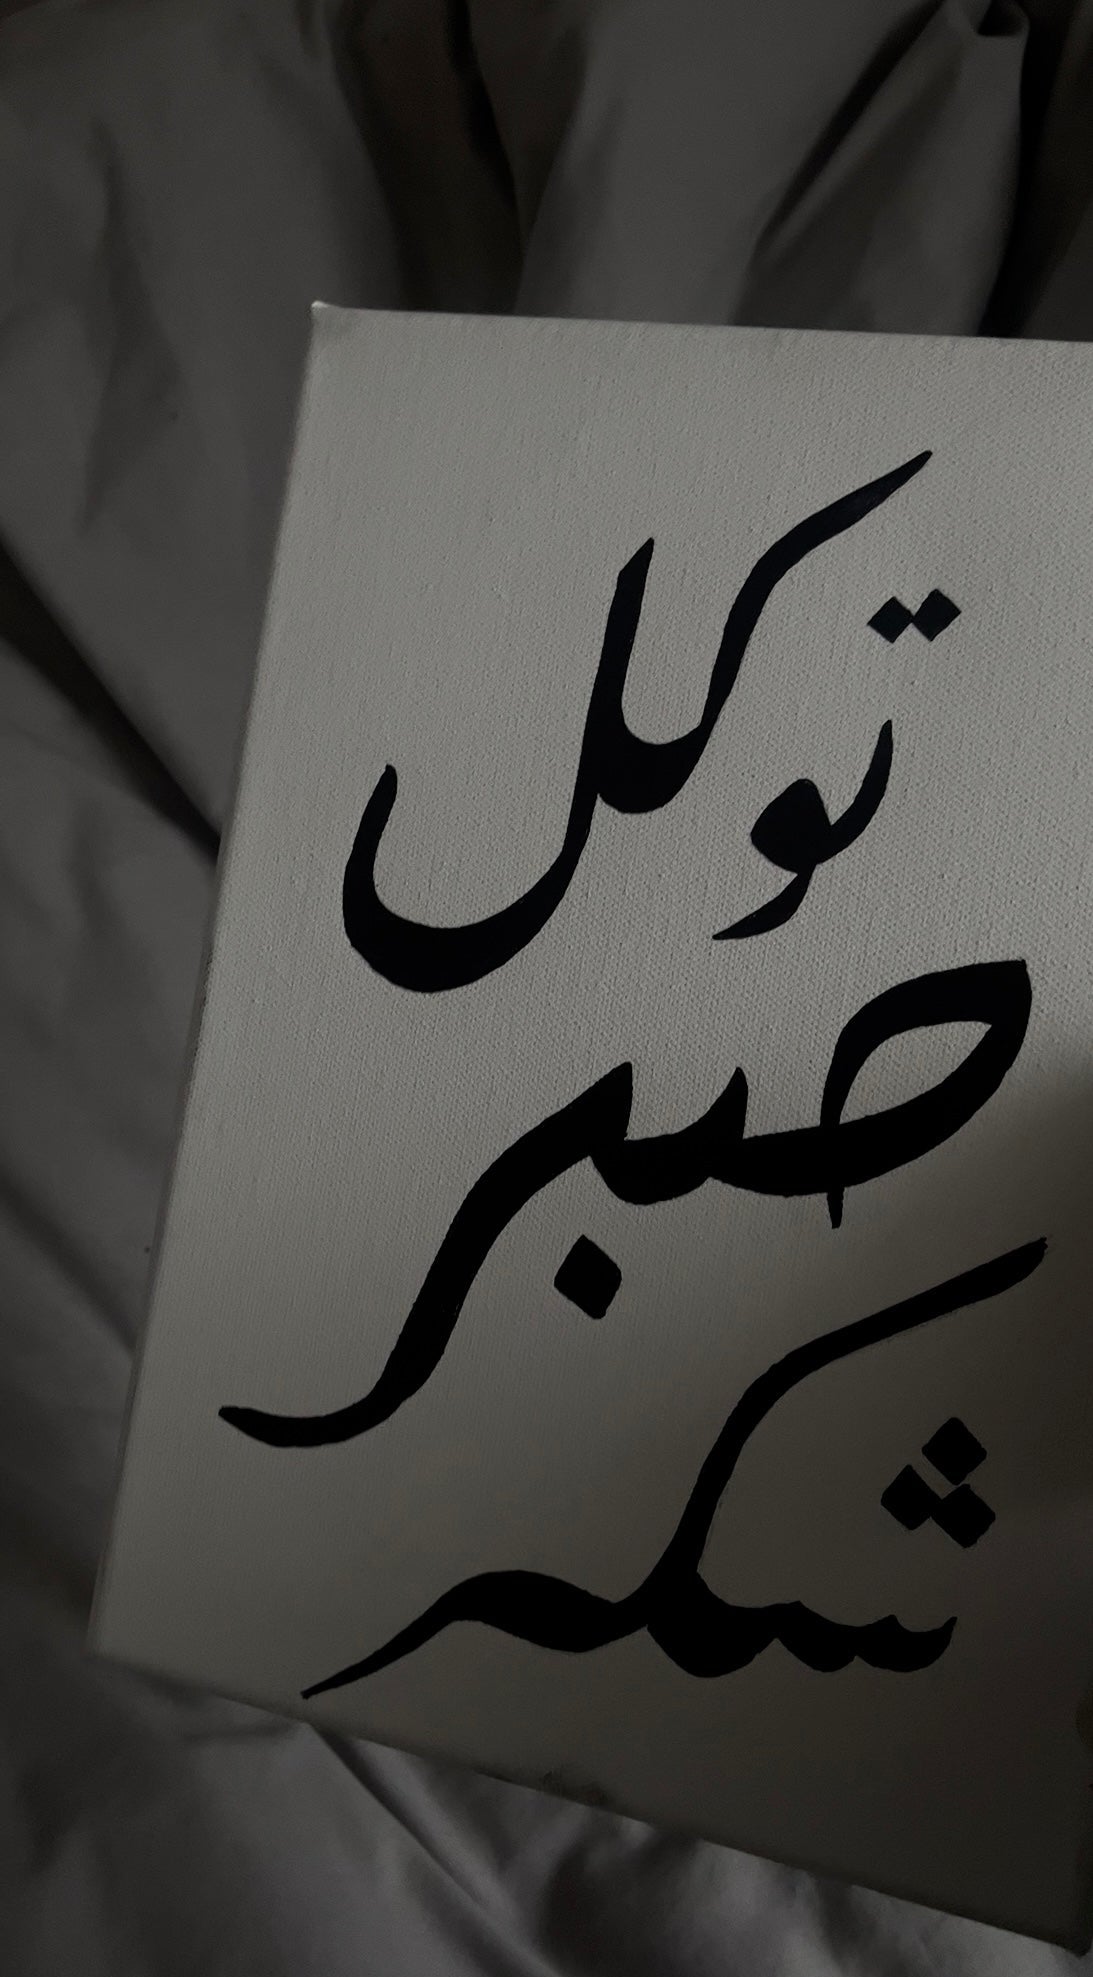 توكل
صبر
شكر